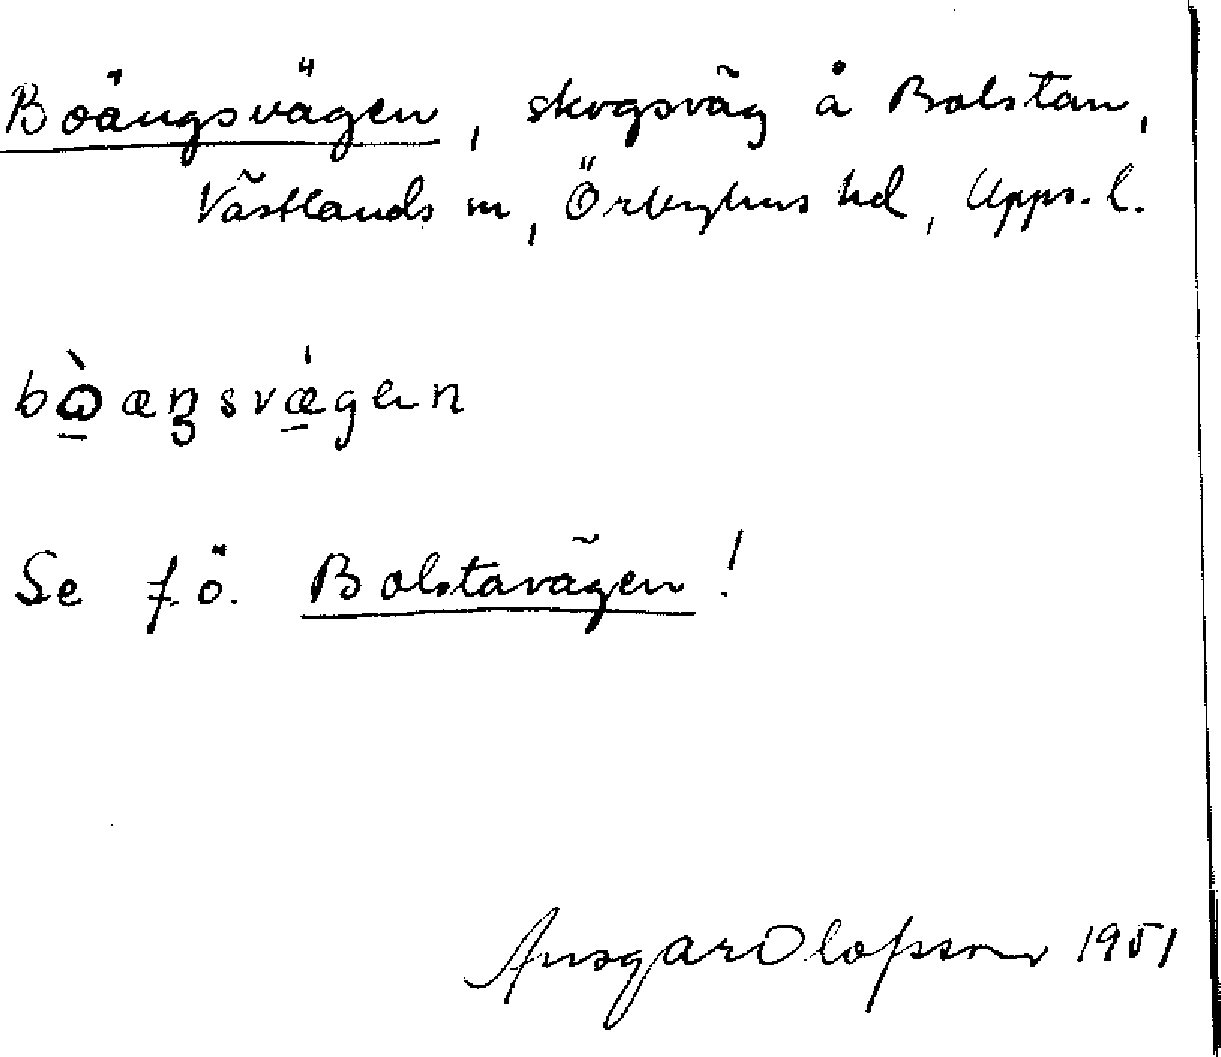 Boängsvägen, skogsväg å Bolstan,
Västlands sn, Örbyhus hd, Upps. l.
bò̱æŋsvǽ̱gen
Se f. ö. Bolstavägen!
Ansgar Olofsson 1951